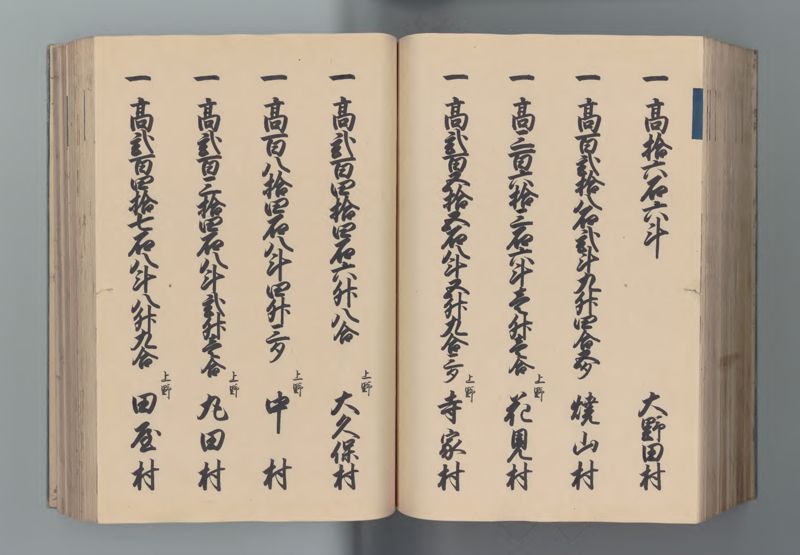 一 高拾六石六斗 大野田村
一 高百弐拾八石弐斗九升四合 焼山村
一 高三百六拾三石六斗壱升壱合 上野 花見村
一 高弐百五拾五石八斗五升九合二夕 上野 寺家村
一 高弐百四拾四石六升八合 上野 大久保村
一 高百八拾四石八斗四升二夕 上野 中村
一 高弐百三拾四石八斗弐升壱合 上野 丸田村
一 高弐百四拾七石八斗八升九合 上野 田屋村